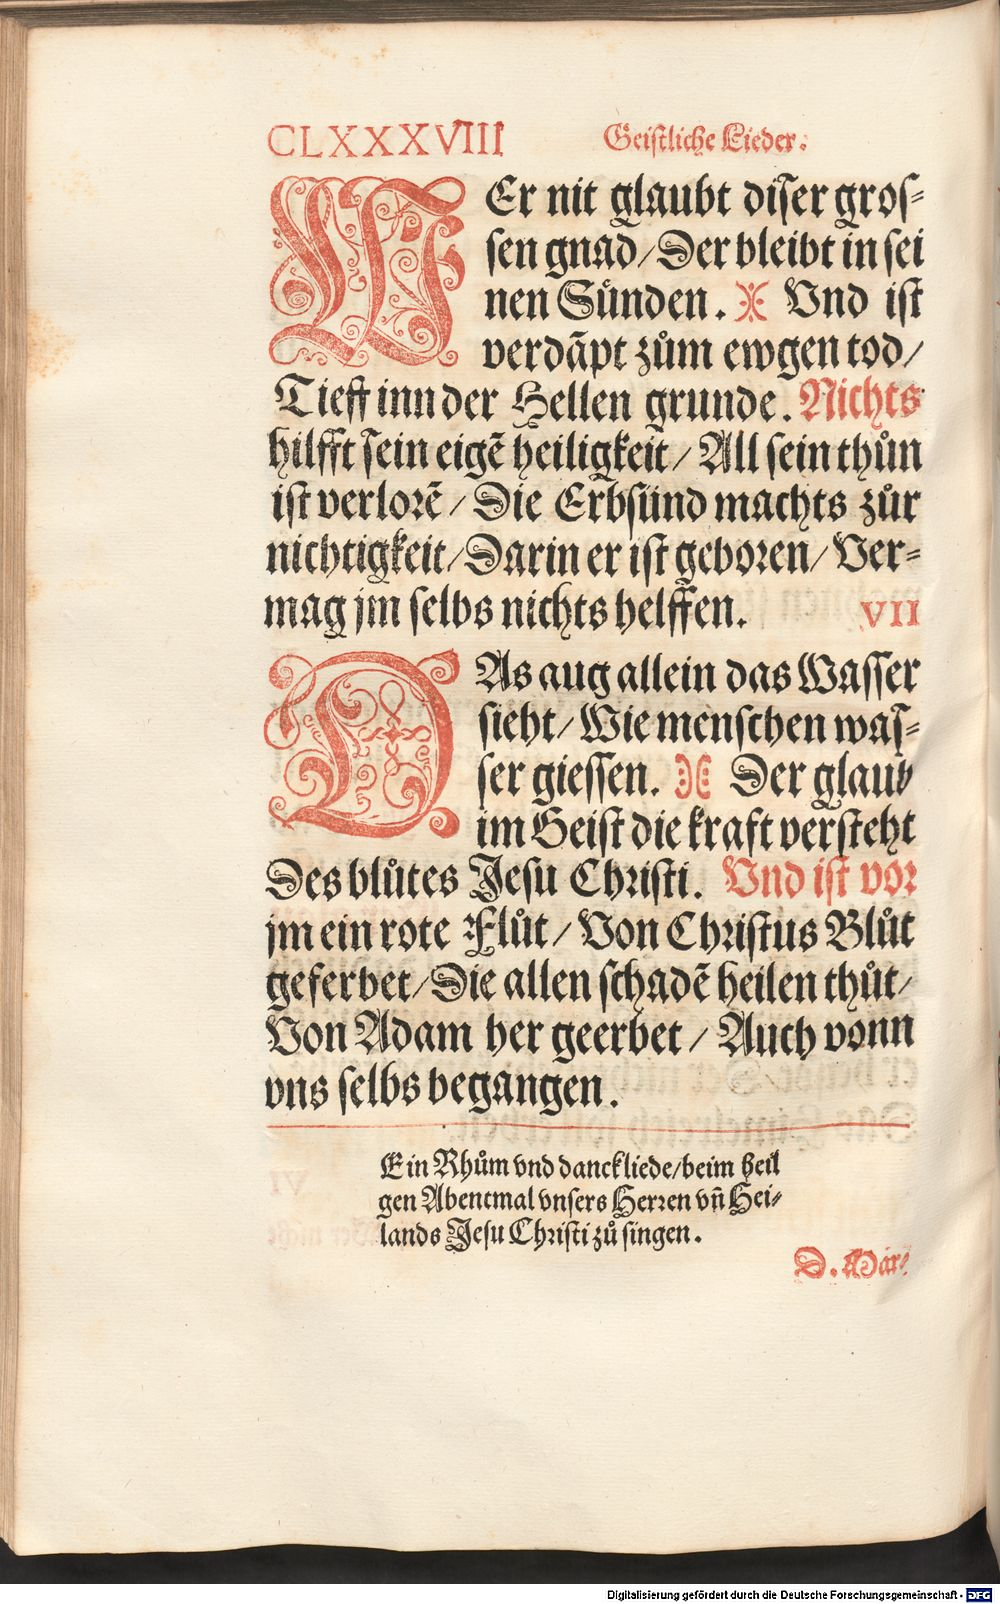 CLXXXVIII Geistliche Lieder.
WEr nit glaubt diser gros-
sen gnad/Der bleibt in sei
nen Sünden. Vnd ist
verdãpt zům ewgen tod/
Tieff inn der Hellen grunde. Nichts
hilfft sein eigẽ heiligkeit/ All sein thůn
ist verlorẽ/ Die Erbsünd machts zůr
nichtigkeit/Darin er ist geboren/ Ver-
mag jm selbs nichts helffen. VII
DAs aug allein das Wasser
sieht/ Wie menschen was-
ser giessen. Der glaub
im Geist die kraft versteht
Des blůtes Jesu Christi. Vnd ist vor
jm ein rote Flůt/ Von Christus Blůt
geferbet/Die allen schadẽ heilen thůt/
Von Adam her geerbet/ Auch vonn
vns selbs begangen.
Ein Rhům vnd danckliede/beim heil
gen Abentmal vnsers Herren vñ Hei-
lands Jesu Christi zů singen.
D. Mar-
Digitalisierung gefördert durch die Deutsche Forschungsgemeinschaft - DFG